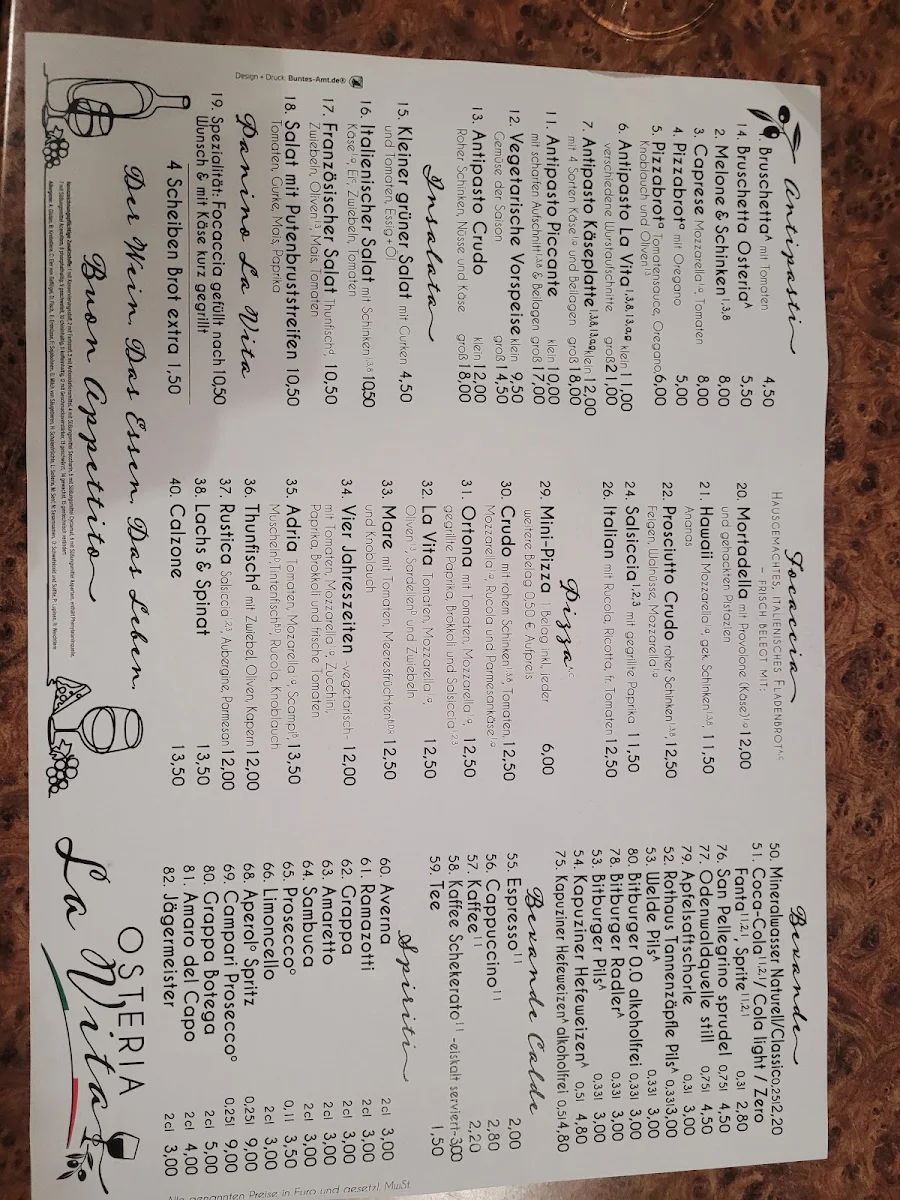 Antipasti
Bruschetta^A mit Tomaten 4,50
14. Bruschetta Osteria^A 5,50
2. Melone & Schinken 1,3,8 8,00
3. Caprese Mozzarella, Tomaten 8,00
4. Pizzabrot^a mit Oregano 5,00
5. Pizzabrot^a Tomatensauce, Oregano, 6,00
Knoblauch und Oliven
6. Antipasto La Vita klein 11,00
verschiedene Wurstaufschnitte groß 21,00
7. Antipasto Käseplatte klein 12,00
mit 4 Sorten Käse und Beilagen groß 18,00
11. Antipasto Piccante klein 10,00
mit scharfen Aufschnitt & Beilagen groß 17,00
12. Vegetarische Vorspeise klein 9,50
Gemüse der Saison groß 14,50
13. Antipasto Crudo klein 12,00
Roher Schinken, Nüsse und Käse groß 18,00
Insalata
15. Kleiner grüner Salat mit Gurken 4,50
und Tomaten, Essig + Öl
16. Italienischer Salat mit Schinken 10,50
Käse, Ei, Zwiebeln, Tomaten
17. Französischer Salat Thunfisch^d, 10,50
Zwiebeln, Oliven, Mais, Tomaten
18. Salat mit Putenbruststreifen 10,50
Tomaten, Gurke, Mais, Paprika
Panino La Vita
19. Spezialität: Focaccia gefüllt nach 10,50
Wunsch & mit Käse kurz gegrillt
4 Scheiben Brot extra 1,50
Focaccia
HAUSGEMACHTES, ITALIENISCHES FLADENBROT
– FRISCH BELEGT MIT:
20. Mortadella mit Provolone (Käse) 12,00
und gehackten Pistazien
21. Hawaii Mozzarella, gek. Schinken 11,50
Ananas
22. Prosciutto Crudo roher Schinken 12,50
Feigen, Walnüsse, Mozzarella
24. Salsiccia 1,2,3 mit gegrillte Paprika 11,50
26. Italian mit Rucola, Ricotta, fr. Tomaten 12,50
Pizza
29. Mini-Pizza 1 Belag inkl., jeder 6,00
weitere Belag 0,50 € Aufpreis
30. Crudo mit rohem Schinken, Tomaten, 12,50
Mozzarella, Rucola und Parmesankäse
31. Ortona mit Tomaten, Mozzarella, 12,50
gegrillte Paprika, Brokkoli und Salsiccia
32. La Vita Tomaten, Mozzarella, 12,50
Oliven, Sardellen und Zwiebeln
33. Mare mit Tomaten, Meeresfrüchten 12,50
und Knoblauch
34. Vier Jahreszeiten -vegetarisch- 12,00
mit Tomaten, Mozzarella, Zucchini,
Paprika, Brokkoli und frische Tomaten
35. Adria Tomaten, Mozarella, Scampi 13,50
Muscheln, Tintenfisch, Rucola, Knoblauch
36. Thunfisch^d mit Zwiebel, Oliven, Kapern 12,00
37. Rustica Salsiccia, Aubergine, Parmesan 12,00
38. Lachs & Spinat 13,50
40. Calzone 13,50
Bevande
50. Mineralwasser Naturell/Classic 0,25l 2,20
51. Coca-Cola 11,2,1/ Cola light / Zero
Fanta 11,2,1, Sprite 11,2,1 0,3l 2,80
76. San Pellegrino sprudel 0,75l 4,50
77. Odenwaldquelle still 0,75l 4,50
79. Apfelsaftschorle 0,3l 3,00
52. Rothaus Tannenzäpfle Pils^A 0,33l 3,00
53. Welde Pils^A 0,33l 3,00
80. Bitburger 0,0 alkoholfrei 0,33l 3,00
78. Bitburger Radler^A 0,33l 3,00
53. Bitburger Pils^A 0,33l 3,00
54. Kapuziner Hefeweizen^A 0,5l 4,80
75. Kapuziner Hefeweizen^A alkoholfrei 0,5l 4,80
Bevande Calde
55. Espresso 11 2,00
56. Cappuccino 11 2,80
57. Kaffee 11 2,20
58. Kaffee Schekerato 11 -eiskalt serviert- 3,00
59. Tee 1,50
Spiriti
60. Averna 2cl 3,00
61. Ramazotti 2cl 3,00
62. Grappa 2cl 3,00
63. Amaretto 2cl 3,00
64. Sambuca 2cl 3,00
65. Prosecco^o 0,1l 3,50
66. Limoncello 2cl 3,00
68. Aperol^o Spritz 0,25l 9,00
69. Campari Prosecco^o 0,25l 9,00
80. Grappa Botega 2cl 5,00
81. Amaro del Capo 2cl 4,00
82. Jägermeister 2cl 3,00
Der Wein. Das Essen. Das Leben.
Buon Appettito
OSTERIA
La Vita
Alle genannten Preise in Euro und gesetzl. MwSt.
Design + Druck: Buntes-Amt.de®